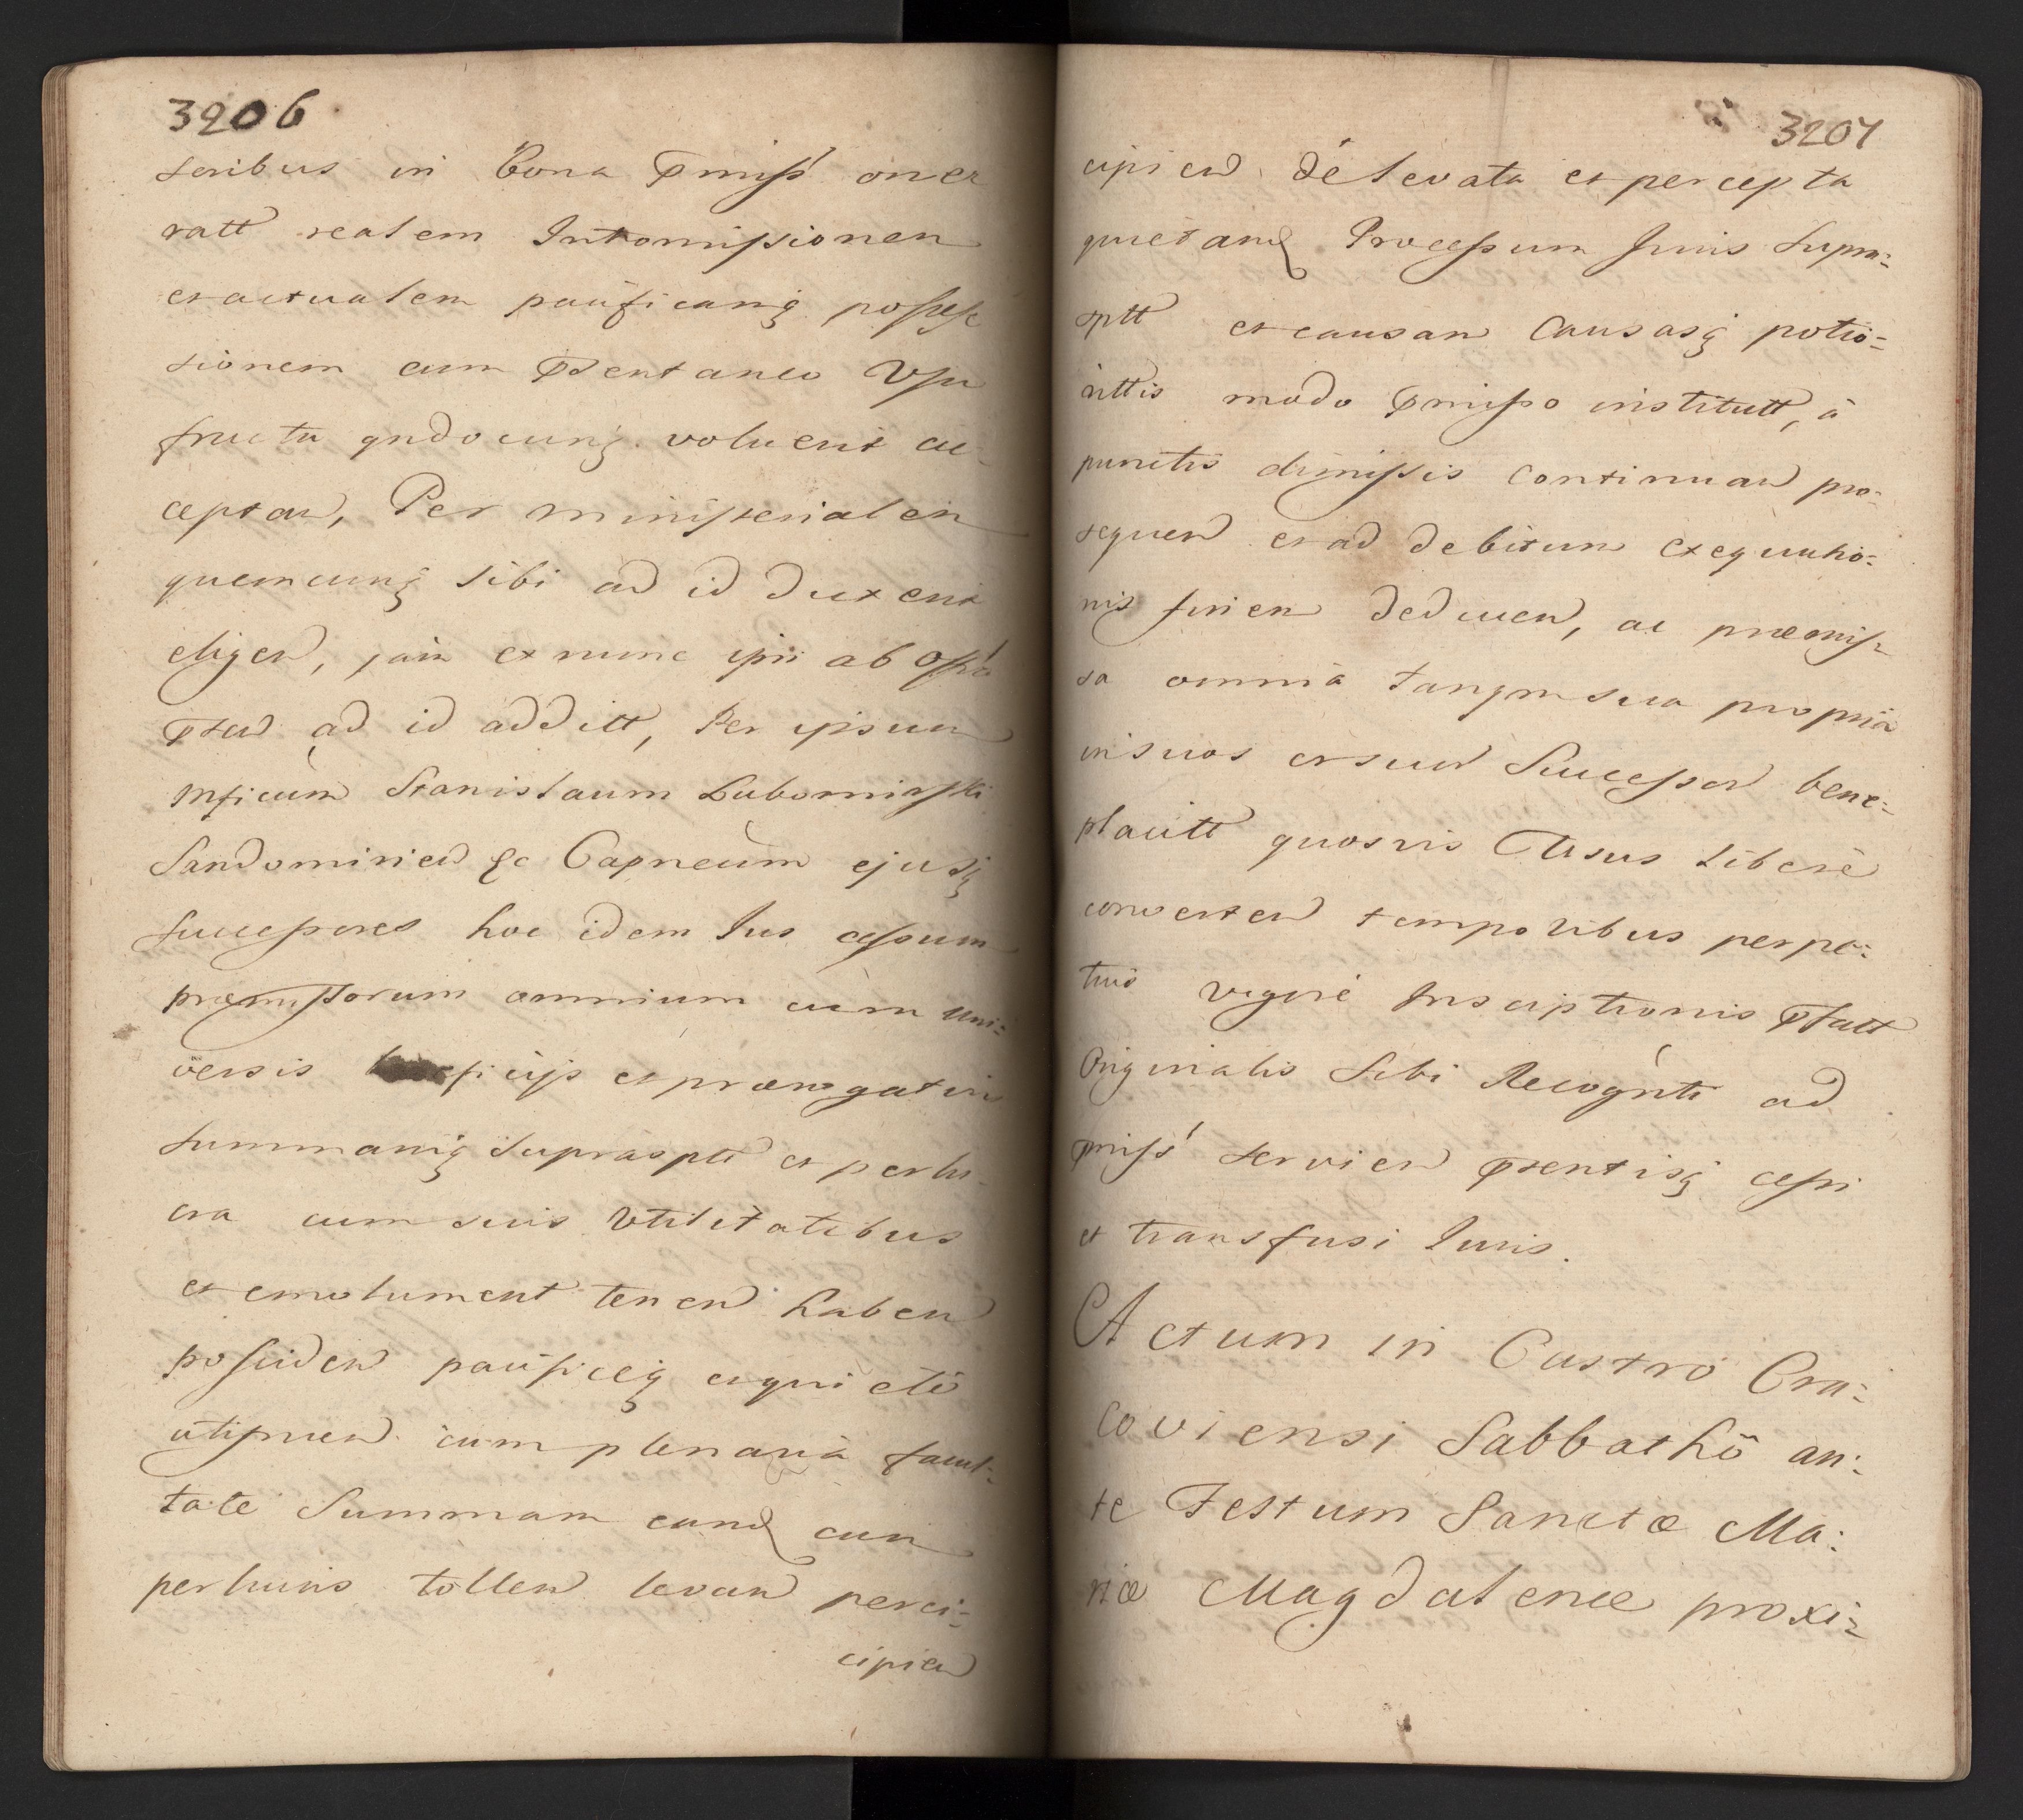 3206
soribus in Bona pmiss oner
ratt realem Intromissionem
et actualem pacificamq posses
sionem cum psentaneo Vsu
fructu qndocunq voluerit ac
ceptan, Per ministerialem
quemcunq sibi ad id duxerit
eligen, jam ex nunc ipsi ab offo
psen ad id additt, Per ipsum
Mficum Stanislaum Lubomirski
Sandomirien &c Capneum ejusq
successores hoc idem Jus cessum
præmissorum omnium cum uni=
versis beneficijs et prærogativis
summamq supraspta et perlu
cra cum suis Vtilitatibus
et emolument tenen haben
possiden pacificeq et quiete
utifruen cum plenaria facul=
tate Summam eand cum
perlucris tollen levan perci=
cipien
3207
cipien delevata et percepta
quietand Processum Juris Supra=
sptt et causam Causasq potio=
rittis modo pmisso institutt, à
punctis dimissis continuan pro=
sequen et ad debitum exequutio=
nis finem deducen, ac præmis=
sa omnia tanqm sua propria
in suos et suor Successor bene=
placitt quosvis Usus libere
converten temporibus perpe=
tuis vigore Inscriptionis pfatt
Originalis Sibi Recognti ad
pmiss servien psentisq cessi
et transfusi Juris.
Actum in Castro Cra=
coviensi Sabbathô an=
te Festum Sanctæ Ma=
riæ Magdalenæ proxi=